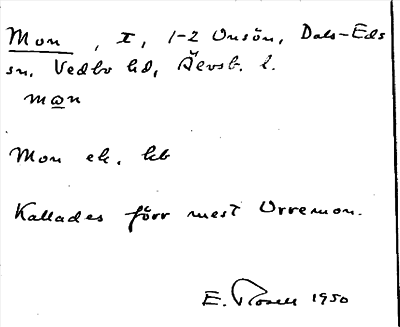 Mon, I, 1-2 Onsön, Dals-Eds
sn. Vedbo hd, Älvsb. l.
mɷn
Mon ek. kb
Kallades förr mest Orremon.
E. Rosell 1950